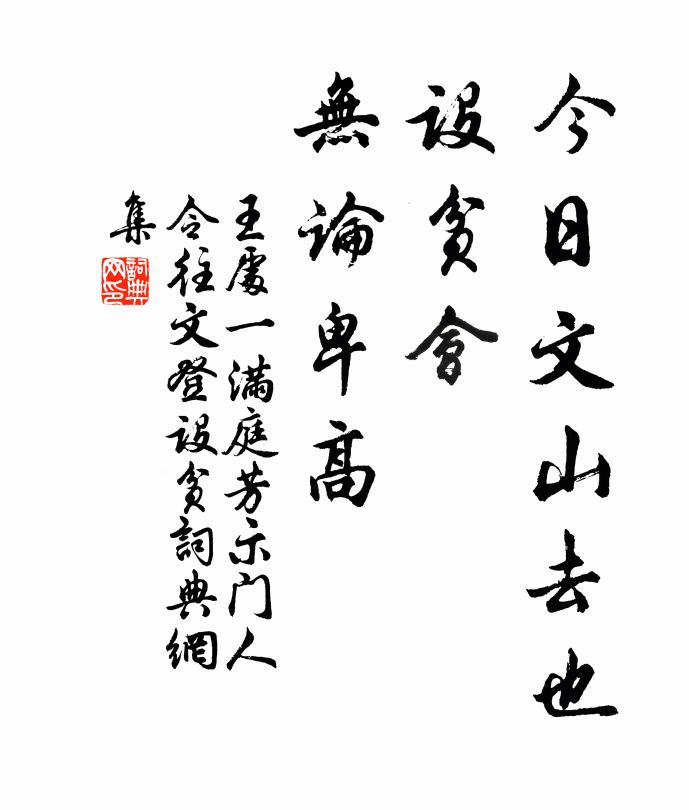 今日文山去也
設貧會
無論卑高
王處一滿庭芳示门人
令往文登設貧詞典網
集
詞典
网印